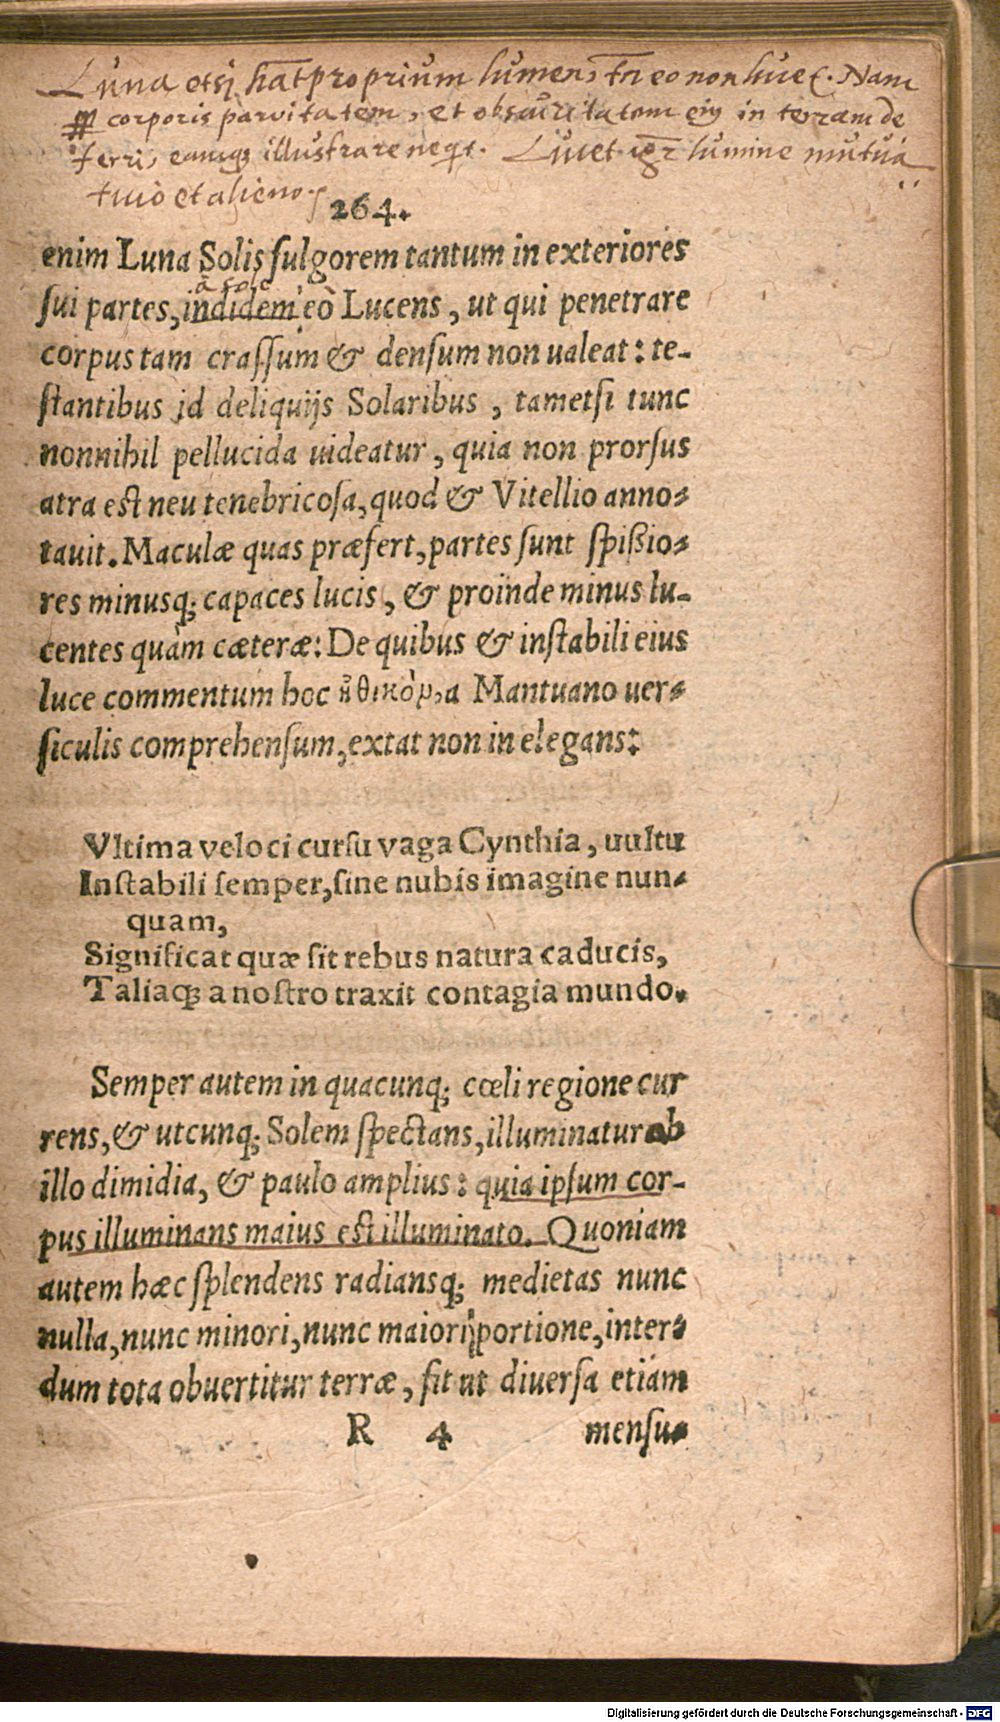 Luna etsi hāt proprium lumen, tn̄ eo non luce(. Nam
corporis parvitatem, et obscuritatem eiꝰ in terram de
ferri, eamqꝫ illustrare neqͥt. Lucet igr̄ lumine mutua
ticiò et alieno.
264.
enim Luna Solis fulgorem tantum in exteriores
à sole
sui partes, indidem eò Lucens, ut qui penetrare
corpus tam crassum & densum non ualeat: te-
stantibus id deliquijs Solaribus, tametsi tunc
nonnihil pellucida uideatur, quia non prorsus
atra est neu tenebricosa, quod & Vitellio anno-
tauit. Maculæ quas præfert, partes sunt spißio-
res minusq; capaces lucis, & proinde minus lu-
centes quàm cæteræ: De quibus & instabili eius
luce commentum hoc Mantuano uer-
siculis comprehensum, extat non in elegans:
Vltima veloci cursu vaga Cynthia, uultu
Instabili semper, sine nubis imagine nun-
quam,
Significat quæ sit rebus natura caducis,
Taliaqꝫ a nostro traxit contagia mundo.
Semper autem in quacunq; cœli regione cur
rens, & utcunq; Solem spectans, illuminatur ab
illo dimidia, & paulo amplius: quia ipsum cor-
pus illuminans maius est illuminato. Quoniam
autem hæc splendens radiansq; medietas nunc
nulla, nunc minori, nunc maiori portione, inter-
dum tota obuertitur terræ, fit ut diuersa etiam
R 4 mensu-
Digitalisierung gefördert durch die Deutsche Forschungsgemeinschaft - DFG